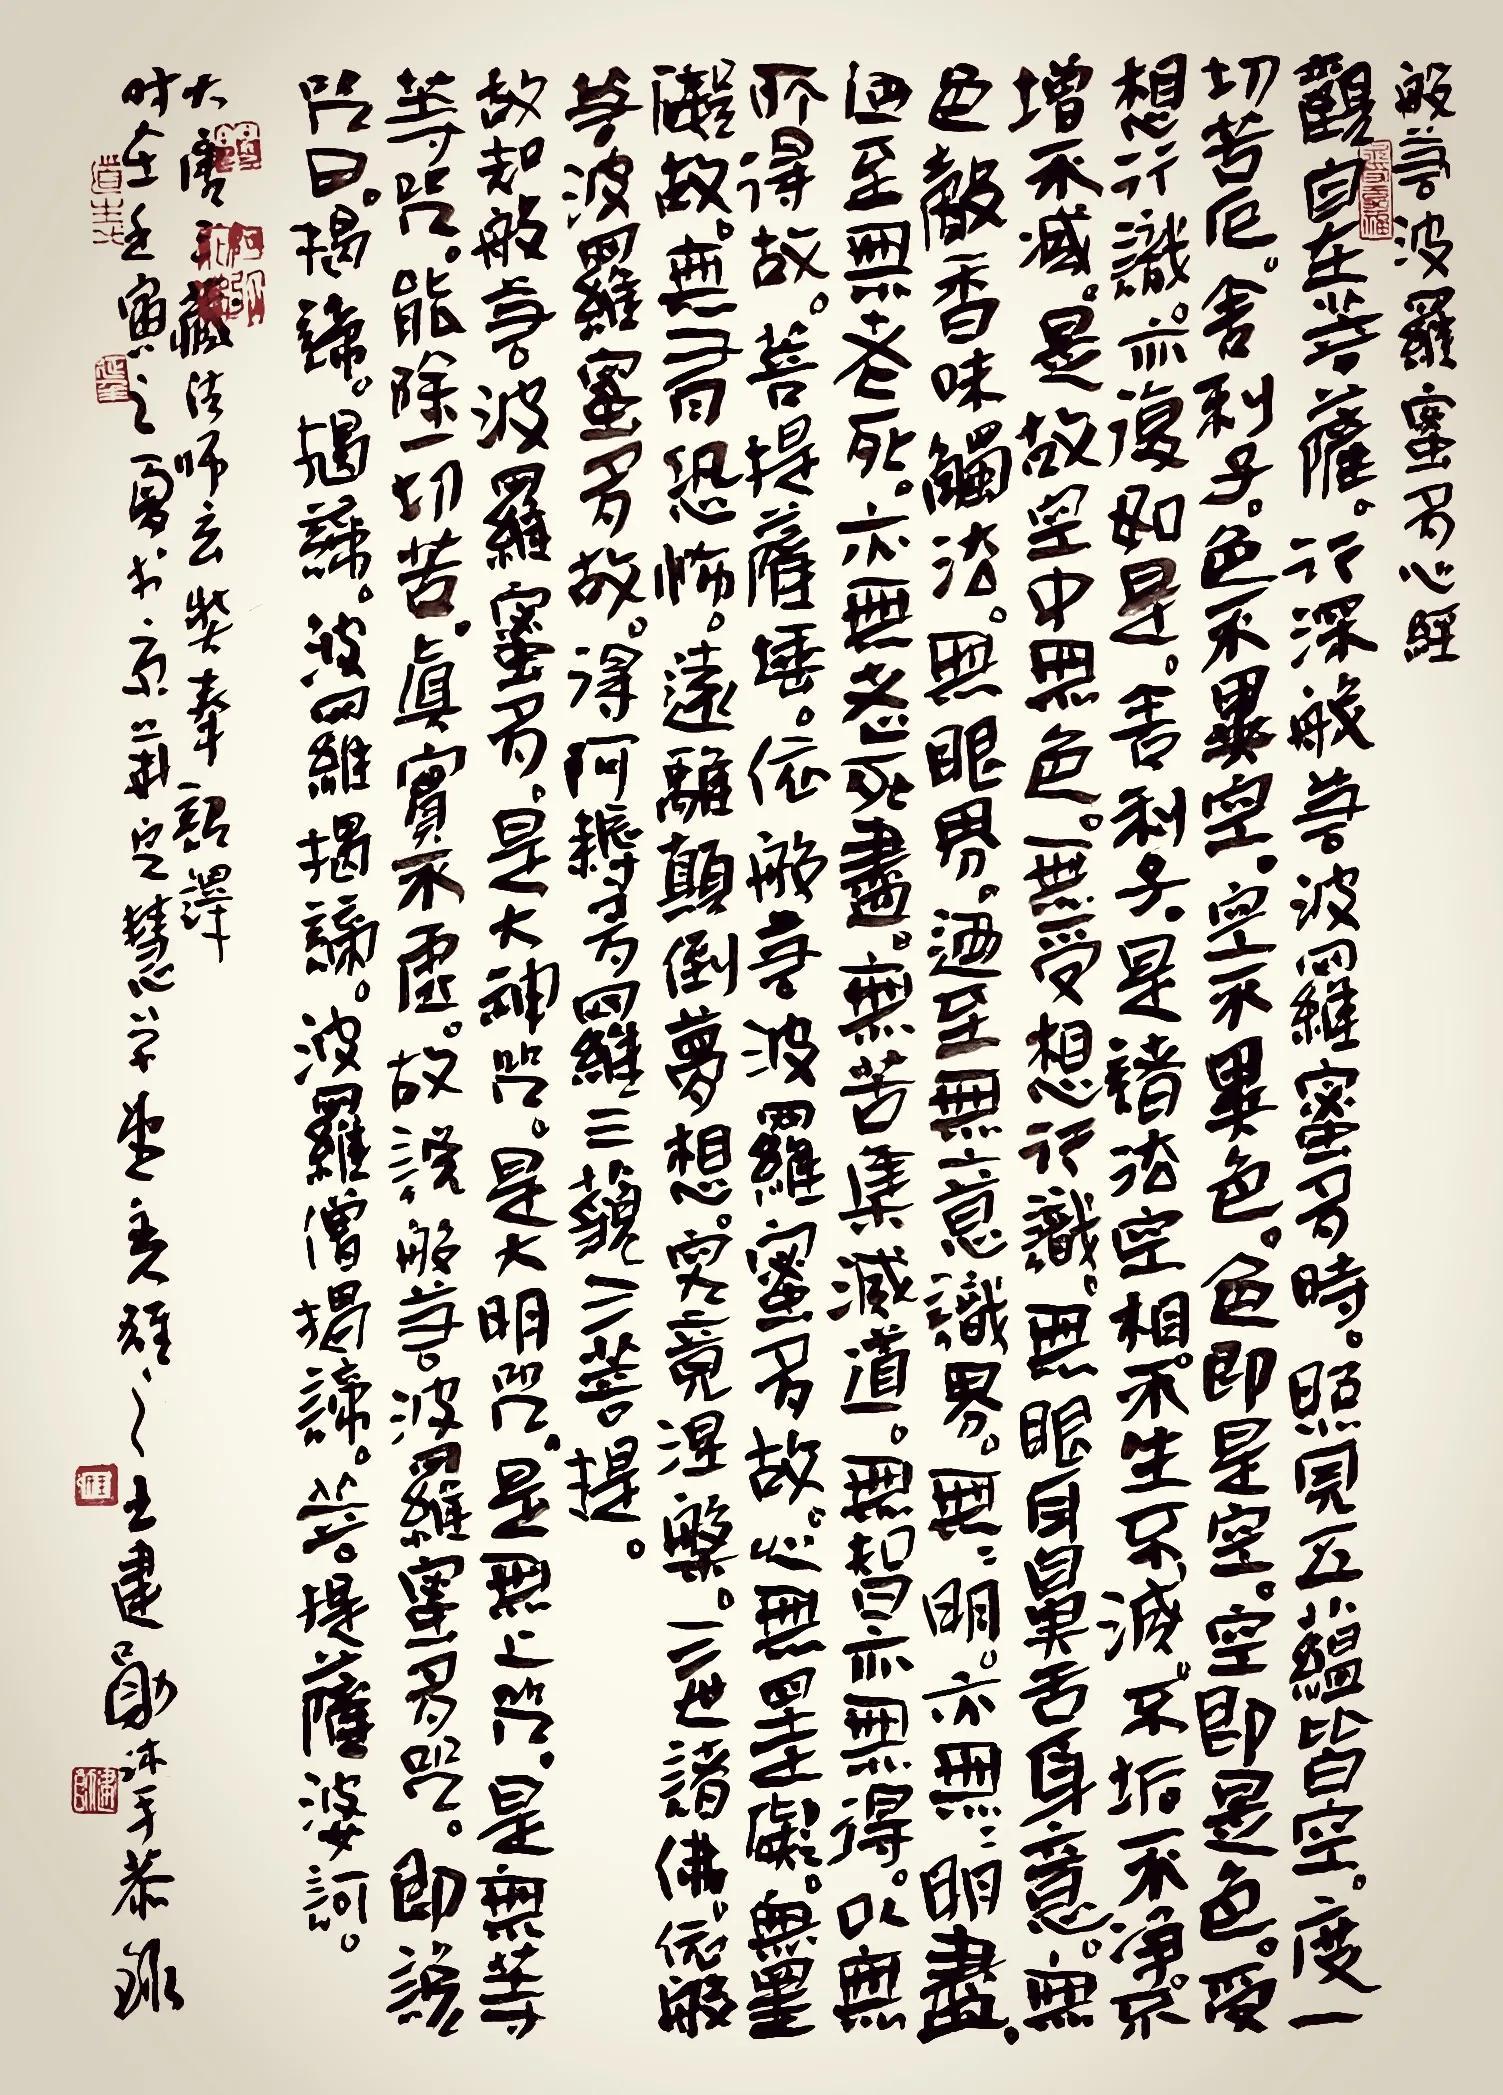 般若波羅蜜多心經
觀自在菩薩。行深般若波羅蜜多時。照見五蘊皆空。度一
切苦厄。舍利子。色不異空。空不異色。色即是空。空即是色。受
想行識。亦復如是。舍利子。是諸法空相。不生不滅。不垢不淨。不
增不減。是故空中無色。無受想行識。無眼耳鼻舌身意。無
色聲香味觸法。無眼界。迺至無意識界。無〻明。亦無〻明盡。
迺至無老死。亦無老死盡。無苦集滅道。無智亦無得。以無
所得故。菩提薩埵。依般若波羅蜜多故。心無罣礙。無罣
礙故。無有恐怖。遠離顛倒夢想。究竟涅槃。三世諸佛。依般
若波羅蜜多故。得阿耨多羅三藐三菩提。
故知般若波羅蜜多。是大神咒。是大明咒。是無上咒。是無等
等咒。能除一切苦。真實不虛。故說般若。波羅蜜多咒。即說
咒曰。揭諦。揭諦。波羅揭諦。波羅僧揭諦。菩。提薩婆訶。
大唐三藏法師玄奘奉詔譯
时在壬寅之夏于京華定慧学堂王建勛沐手恭錄